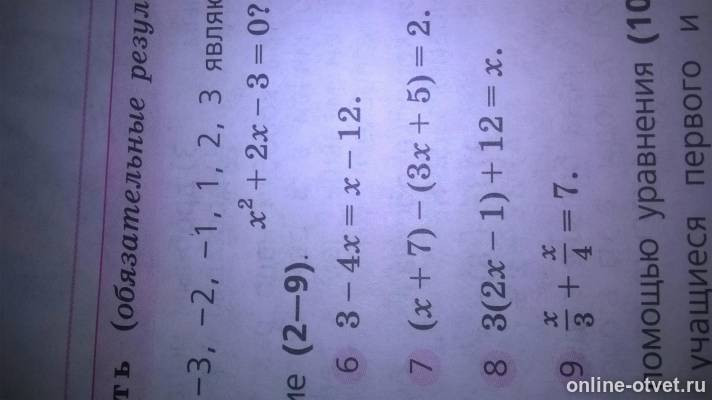 ть (обязательные резул
−3, −2, −1, 1, 2, 3 являю
x² + 2x − 3 = 0?
ие (2—9).
6 3 − 4x = x − 12.
7 (x + 7) − (3x + 5) = 2.
8 3(2x − 1) + 12 = x.
9 x/3 + x/4 = 7.
помощью уравнения (10
учащиеся первого и
online-otvet.ru